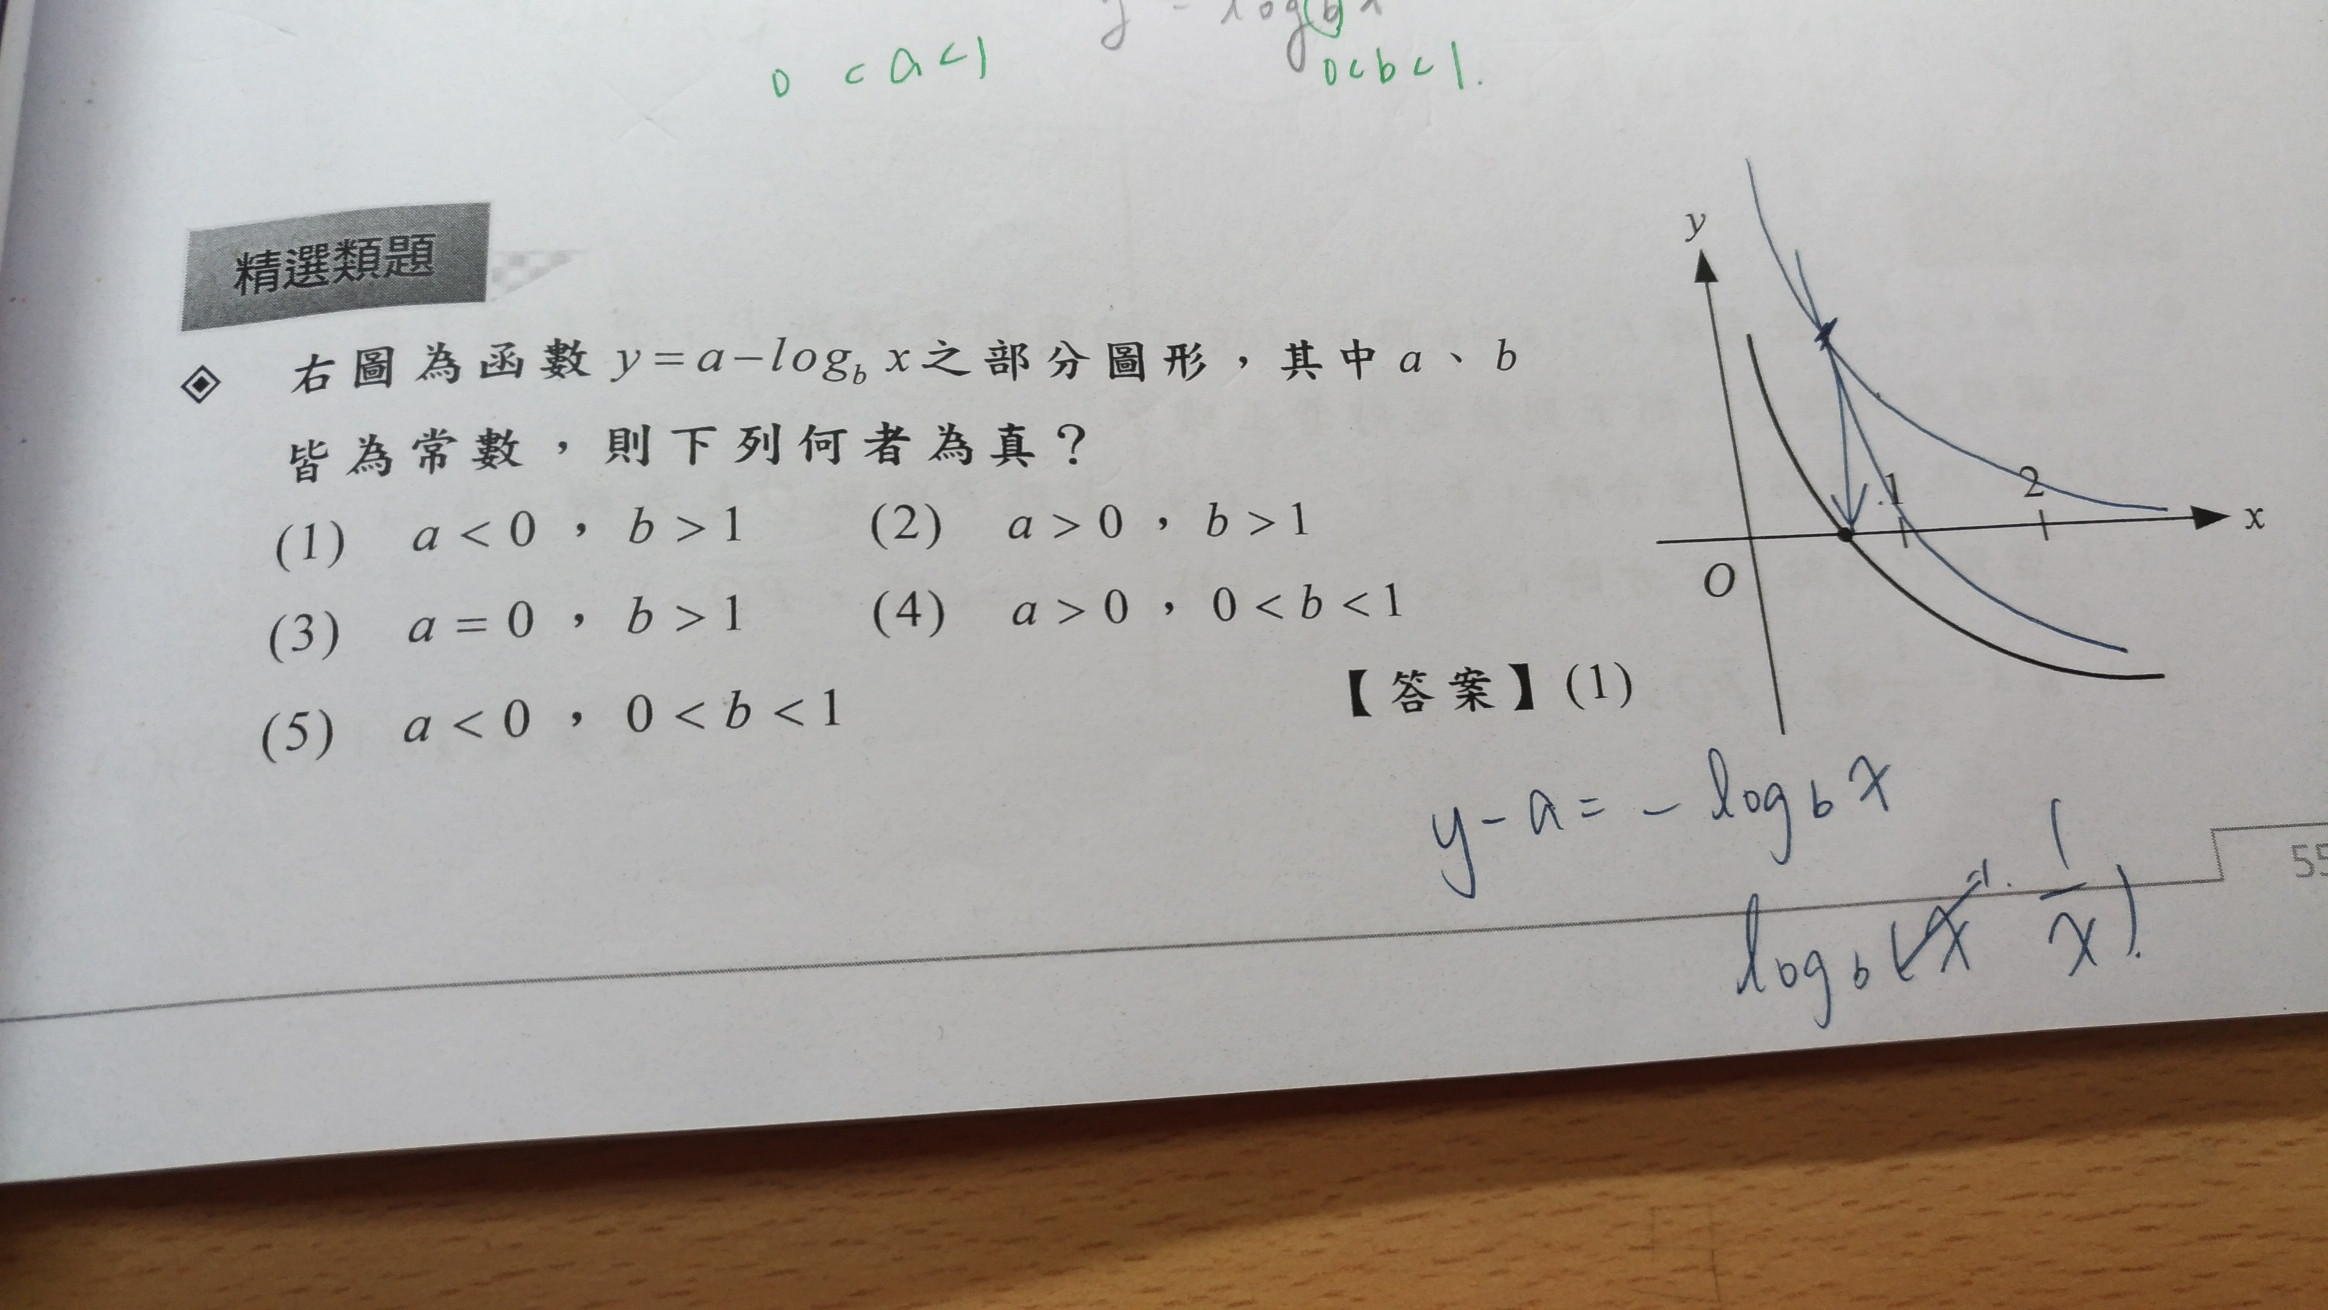 y = log b x
0 < a < 1 0 < b < 1.
精選類題
右圖為函數 y=a−log_b x之部分圖形，其中 a、b
皆為常數，則下列何者為真？
(1) a<0，b>1 (2) a>0，b>1
(3) a=0，b>1 (4) a>0，0<b<1
(5) a<0，0<b<1 【答案】(1)
y
1 2
x
O
y-a = - log b x
log b (x⁻¹ 1/x).
55